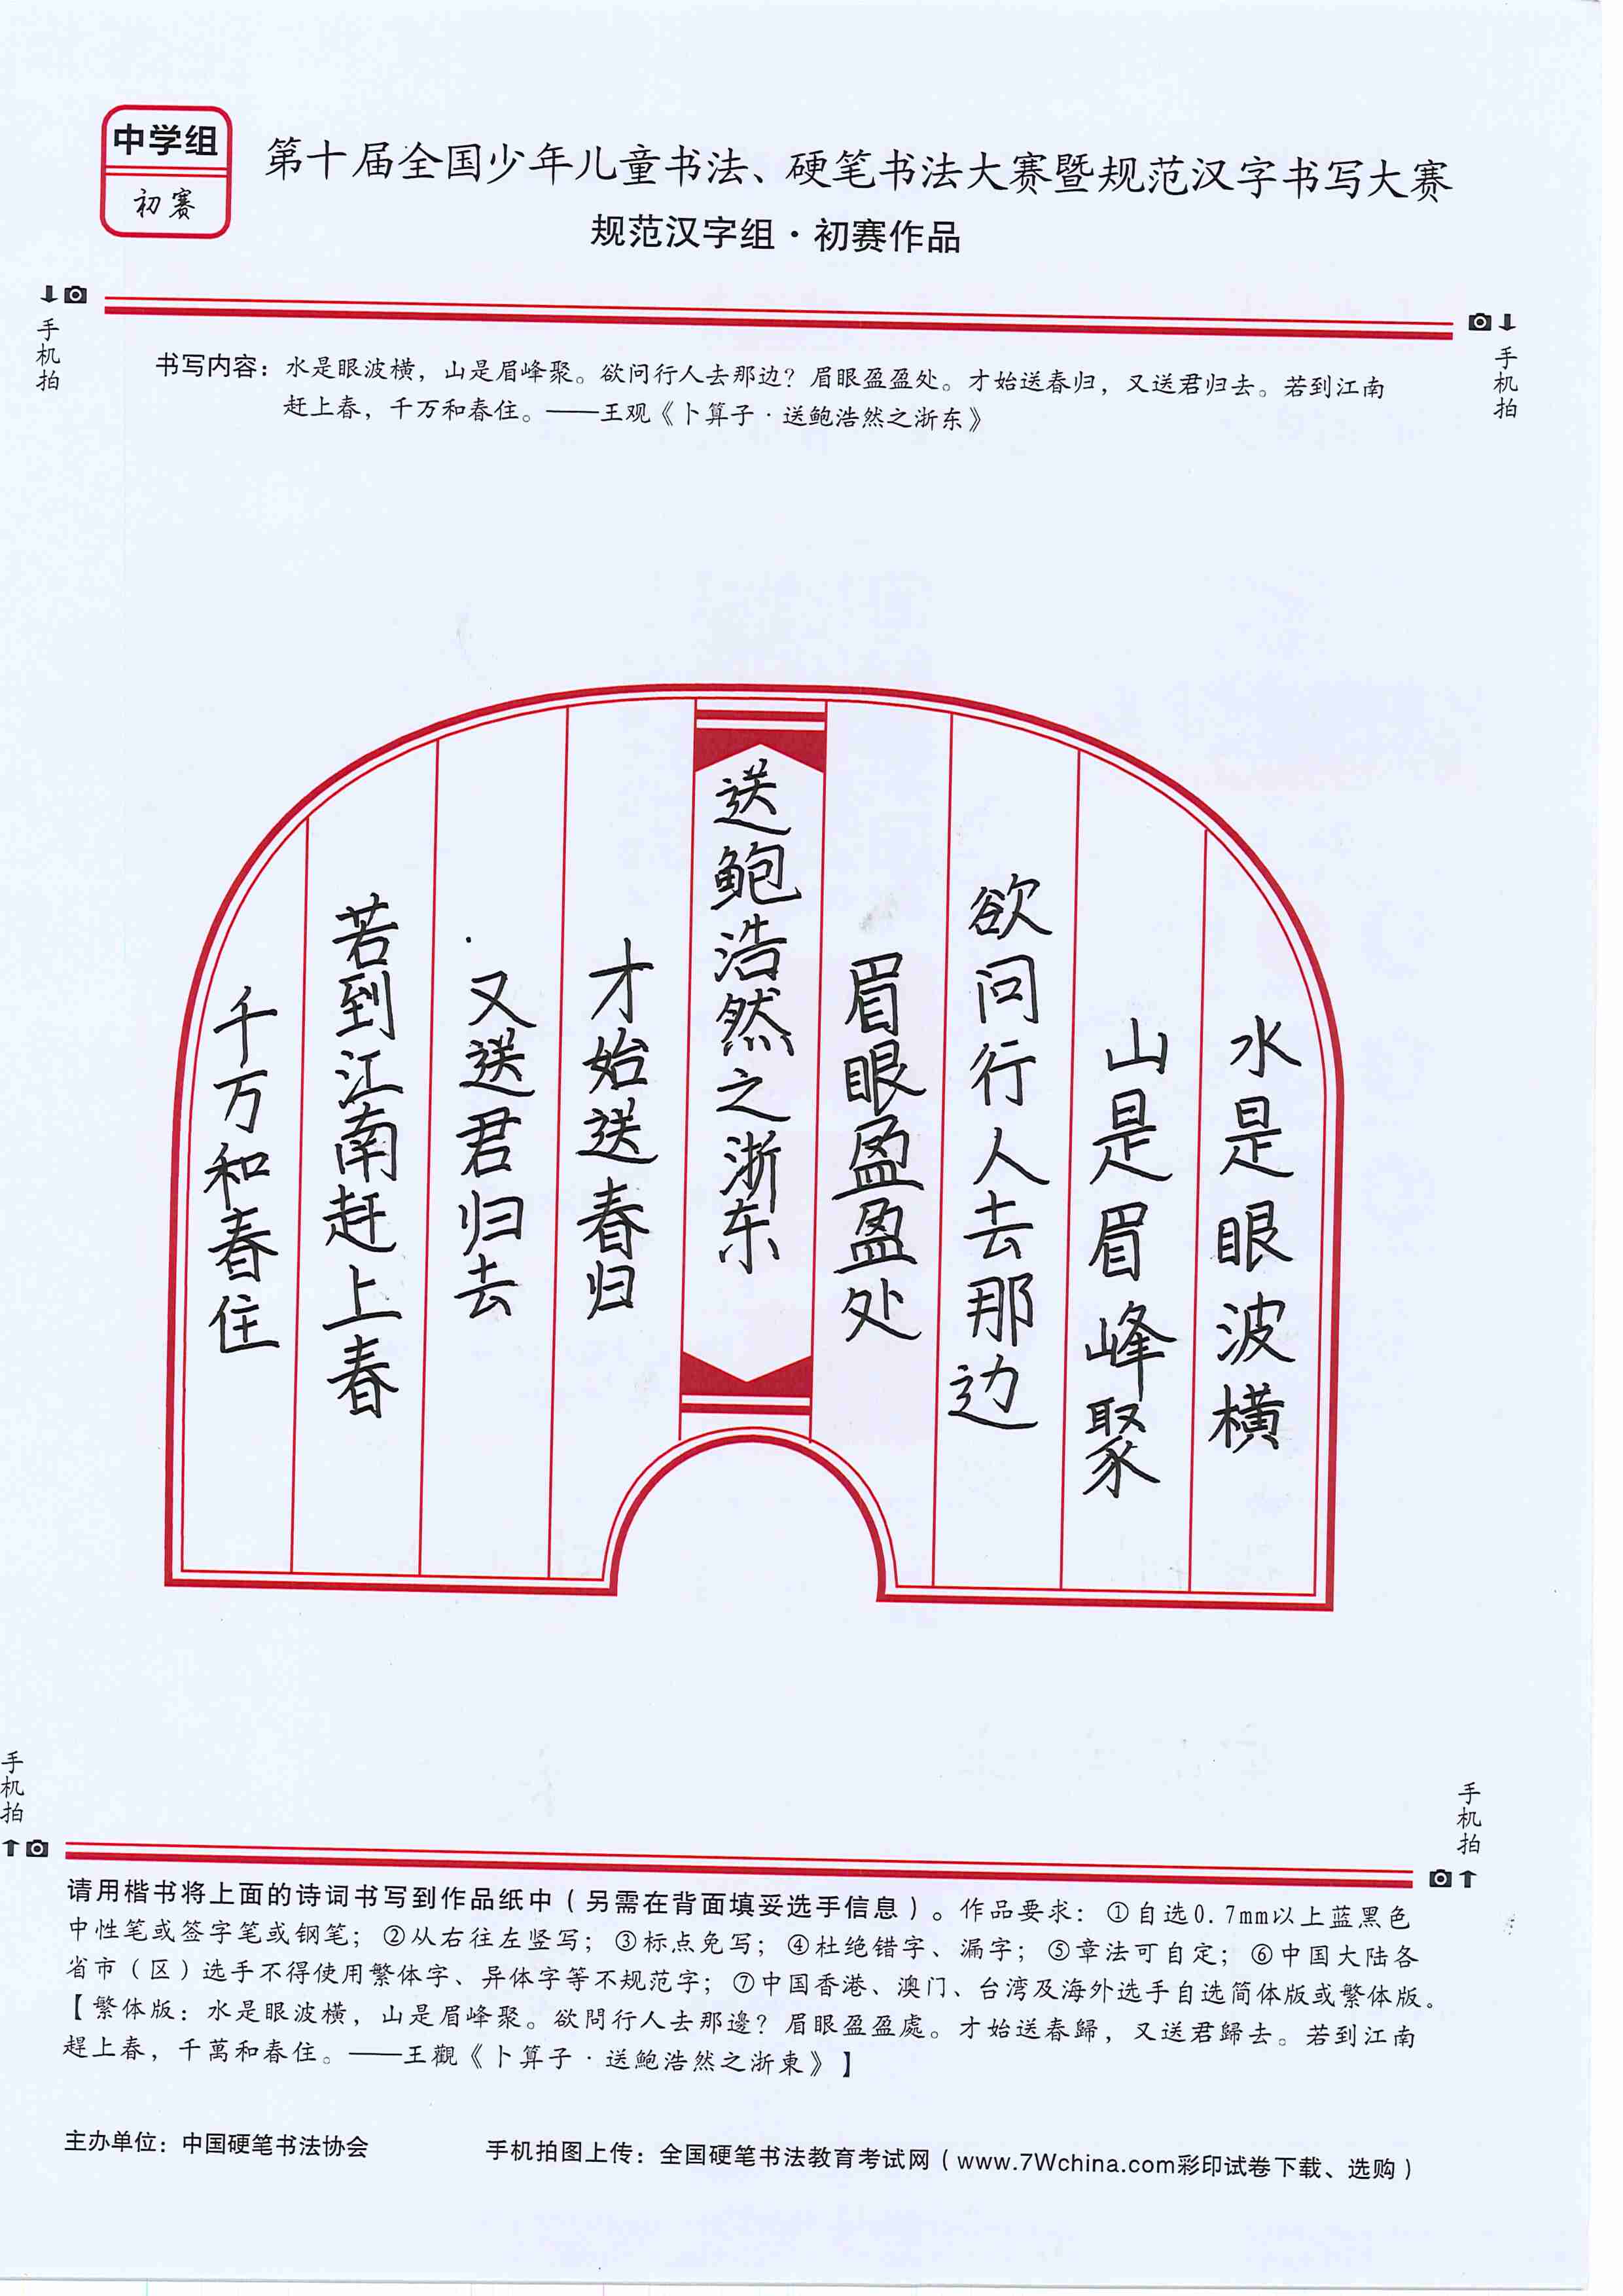 中学组
初赛
第十届全国少年儿童书法、硬笔书法大赛暨规范汉字书写大赛
规范汉字组·初赛作品
手机拍
手机拍
书写内容：水是眼波横，山是眉峰聚。欲问行人去那边？眉眼盈盈处。才始送春归，又送君归去。若到江南
赶上春，千万和春住。——王观《卜算子·送鲍浩然之浙东》
水是眼波横
山是眉峰聚
欲问行人去那边
眉眼盈盈处
送鲍浩然之浙东
才始送春归
又送君归去
若到江南赶上春
千万和春住
手机拍
手机拍
请用楷书将上面的诗词书写到作品纸中（另需在背面填妥选手信息）。作品要求：①自选0.7mm以上蓝黑色
中性笔或签字笔或钢笔；②从右往左竖写；③标点免写；④杜绝错字、漏字；⑤章法可自定；⑥中国大陆各
省市（区）选手不得使用繁体字、异体字等不规范字；⑦中国香港、澳门、台湾及海外选手自选简体版或繁体版。
【繁体版：水是眼波横，山是眉峰聚。欲問行人去那邊？眉眼盈盈處。才始送春歸，又送君歸去。若到江南
趕上春，千萬和春住。——王觀《卜算子·送鮑浩然之浙東》】
主办单位：中国硬笔书法协会
手机拍图上传：全国硬笔书法教育考试网（www.7Wchina.com彩印试卷下载、选购）